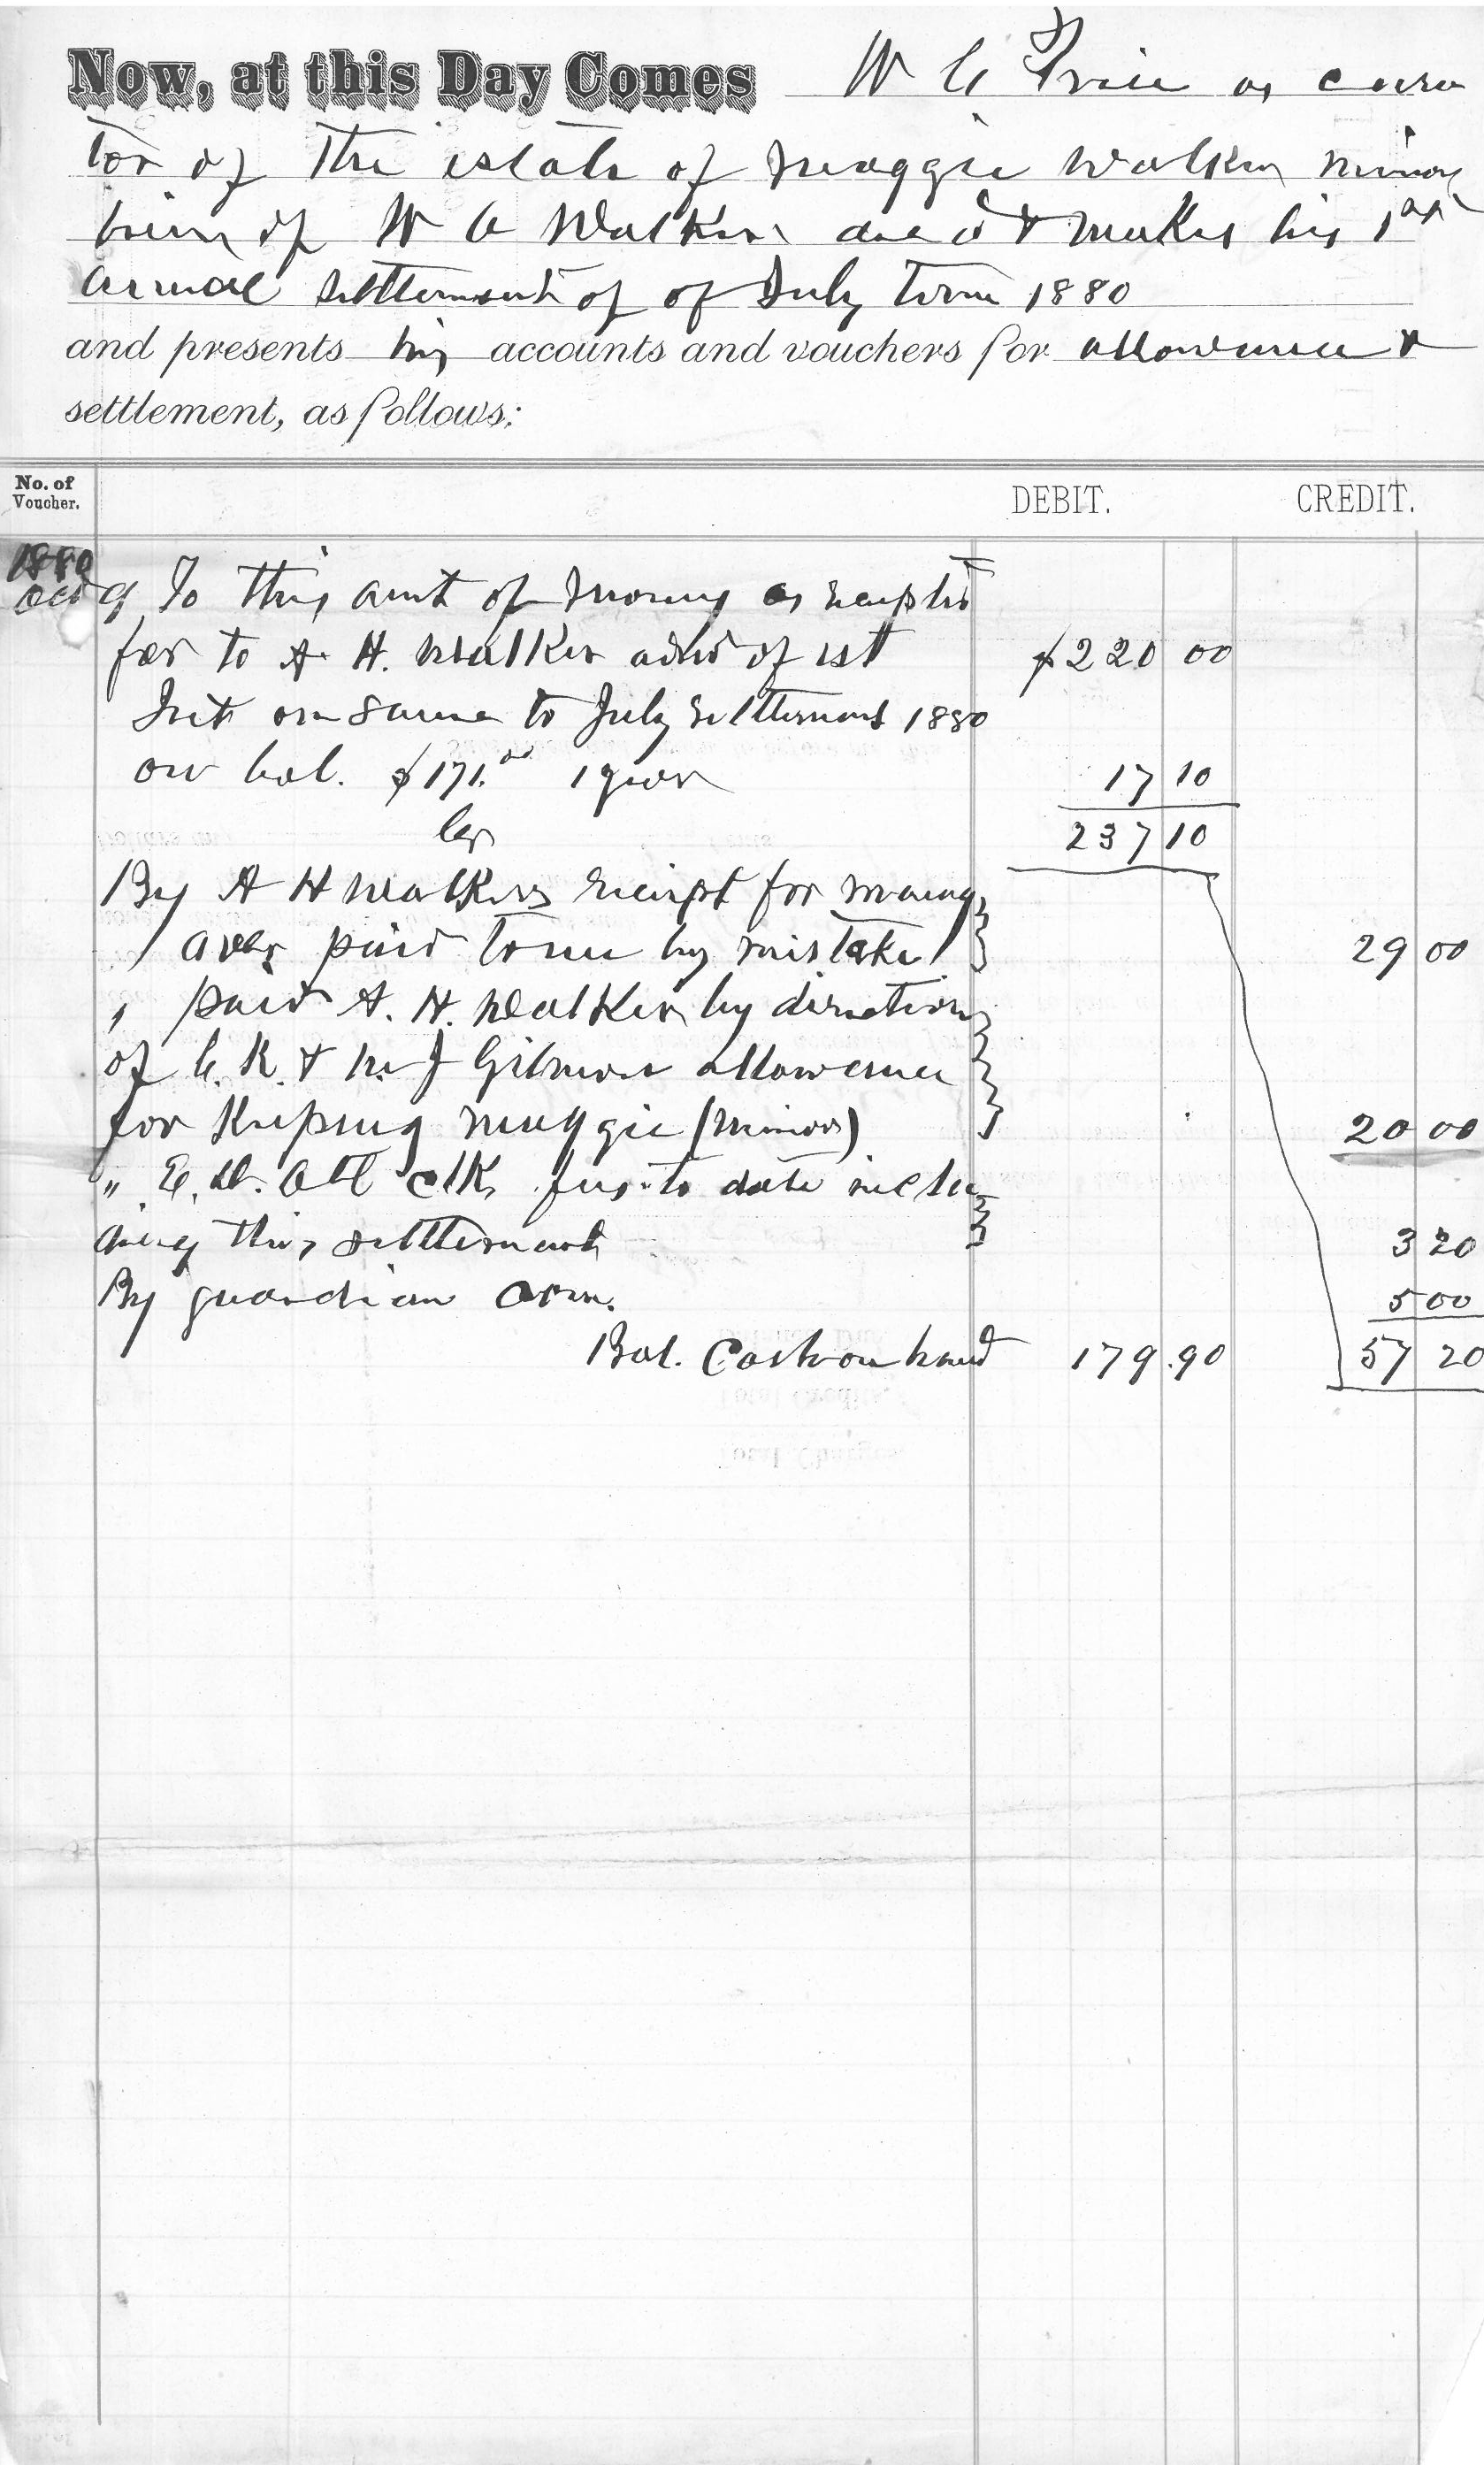 Now, at this Day Comes W C Price as cura
tor of the estate of Maggie Walker minor
heir of W C Walker dec'd & makes his 1st
annual settlement of of July term 1880
and presents his accounts and vouchers for allowance &
settlement, as follows:
No. of Voucher. DEBIT. CREDIT.
1880
Oct 9 To this amt of money as receipted
for to A H. Walker adm'r of est $220 00
Int on same to July settlement 1880
on bal. $171.00 1 year 17 10
Cr 237 10
By A H Walkers receipt for money
over paid to me by mistake 29 00
" paid A. H. Walker by direction
of C. R. & M J Gilmore allowance
for keeping Maggie (minor) 20 00
" E. D. Ott clk fees to date inclu
ding this settlement 3 20
By guardian com. 5 00
Bal. Cash on hand 179.90 57 20